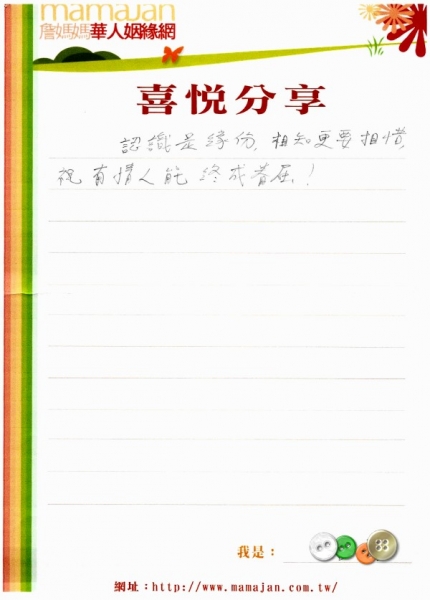 mamajan
詹媽媽華人姻緣網
喜悅分享
認識是緣份,相知更要相惜,
祝有情人能終成眷屬!
我是:
33
網址:http://www.mamajan.com.tw/